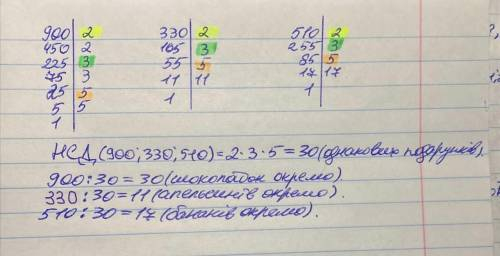 900 2 330 2 510 2
450 2 165 3 255 3
225 3 55 5 85 5
75 3 11 11 17 17
25 5 1 1
5 5
1
НСД (900; 330; 510) = 2 · 3 · 5 = 30 (однакових подарунків).
900 : 30 = 30 (шоколадок окремо)
330 : 30 = 11 (апельсинів окремо).
510 : 30 = 17 (бананів окремо).